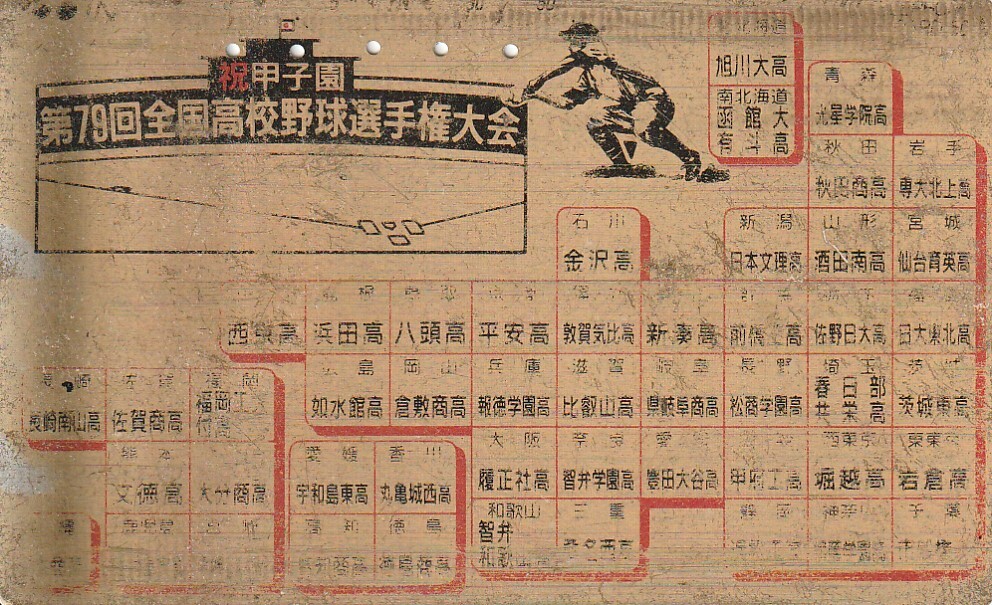 祝甲子園
第79回全国高校野球選手権大会
北海道
旭川大高
南北海道
函館大
有斗高
青森
光星学院高
秋田 岩手
秋田商高 専大北上高
石川 新潟 山形 宮城
金沢高 日本文理高 酒田南高 仙台育英高
浜田高 八頭高 平安高 敦賀気比高 佐野日大高 日大東北高
広島 岡山 兵庫 滋賀 岐阜 長野 埼玉 茨城
如水館高 倉敷商高 報徳学園高 比叡山高 県岐阜商高 松商学園高 春日部共栄高 茨城東高
長崎 佐賀 福岡
長崎南山高 佐賀商高 福岡工付高
大阪 奈良 愛知 西東京 東東京
履正社高 智弁学園高 豊田大谷高 甲府工高 堀越高 岩倉高
熊本 愛媛 香川
文徳高 宇和島東高 丸亀城西高
和歌山 三重 静岡 神奈川 千葉
智弁
和歌山高 桑名西高
鹿児島 高知 徳島
高知商高 徳島商高